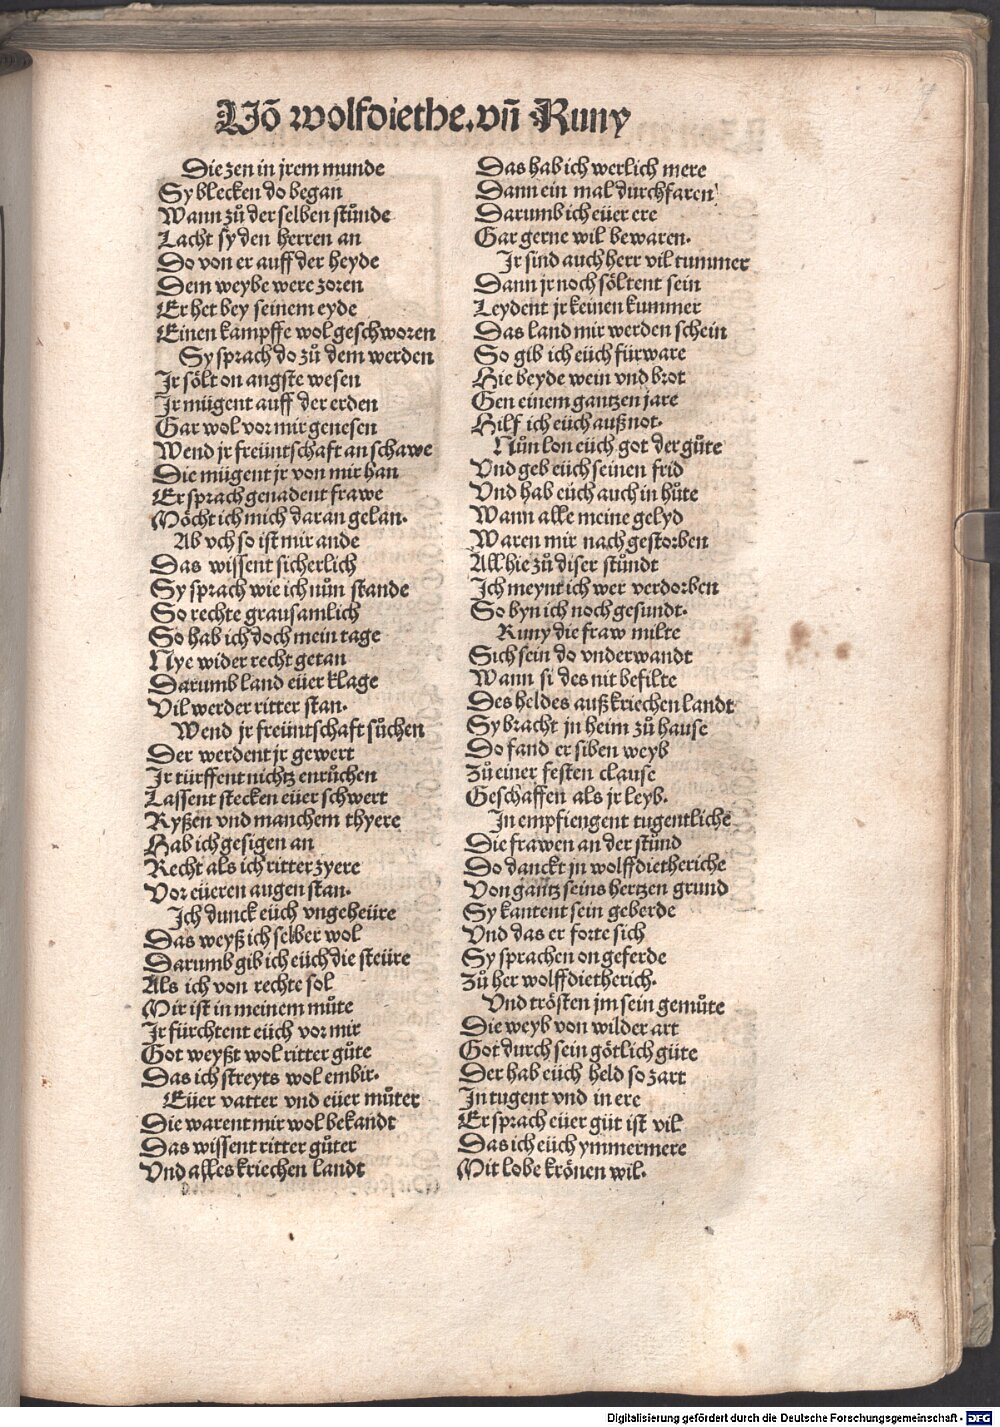 Võ wolfdiethe. vñ Runy
Die zen in jrem munde
Sy blecken do began
Wann zů der selben stůnde
Lacht sy den herren an
Do von er auff der heyde
Dem weybe were zoren
Er het bey seinem eyde
Einen kampffe wol geschworen
Sy sprach do zů dem werden
Ir sölt on angste wesen
Ir mügent auff der erden
Gar wol vor mir genesen
Wend jr freüntschaft an schawe
Die mügent jr von mir han
Er sprach genadent frawe
Möcht ich mich daran gelan.
Ab vch so ist mir ande
Das wissent sicherlich
Sy sprach wie ich nůn stande
So rechte grausamlich
So hab ich doch mein tage
Nye wider recht getan
Darumb land eüer klage
Vil werder ritter stan.
Wend jr freüntschaft sůchen
Der werdent jr gewert
Ir türffent nichtz enrůchen
Lassent stecken eüer schwert
Ryßen vnd manchem thyere
Hab ich gesigen an
Recht als ich ritter zyere
Vor eüeren augen stan.
Ich dunck eüch vngeheüre
Das weyß ich selber wol
Darumb gib ich eüch die steüre
Als ich von rechte sol
Mir ist in meinem můte
Ir fürchtent eüch vor mir
Got weyßt wol ritter gůte
Das ich streyts wol embir.
Eüer vatter vnd eüer můter
Die warent mir wol bekandt
Das wissent ritter gůter
Vnd alles kriechen landt
Das hab ich werlich mere
Dann ein mal durchfaren
Darumb ich eüer ere
Gar gerne wil bewaren.
Ir sind auch herr vil tummer
Dann jr noch söltent sein
Leydent jr keinen kummer
Das land mir werden schein
So gib ich eüch fürware
Hie beyde wein vnd brot
Gen einem gantzen jare
Hilf ich eüch auß not.
Nůn lon eüch got der gůte
Vnd geb eüch seinen frid
Vnd hab eüch auch in hůte
Wann alle meine gelyd
Waren mir nach gestorben
All hie zů diser stůndt
Ich meynt ich wer verdorben
So byn ich noch gesundt.
Runy die fraw milte
Sich sein do vnderwandt
Wann si des nit befilte
Des heldes auß kriechen landt
Sy bracht jn heim zů hause
Do fand er siben weyb
Zů einer festen clause
Geschaffen als jr leyb.
In empfiengent tugentliche
Die frawen an der stůnd
Do danckt jn wolffdietheriche
Von gantz seins hertzen grund
Sy kantent sein geberde
Vnd das er forte sich
Sy sprachen on geferde
Zů her wolffdietherich.
Vnd trösten jm sein gemůte
Die weyb von wilder art
Got durch sein götlich güte
Der hab eüch held so zart
In tugent vnd in ere
Er sprach eüer güt ist vil
Das ich eüch ymmermere
Mit lobe krönen wil.
Digitalisierung gefördert durch die Deutsche Forschungsgemeinschaft - DFG